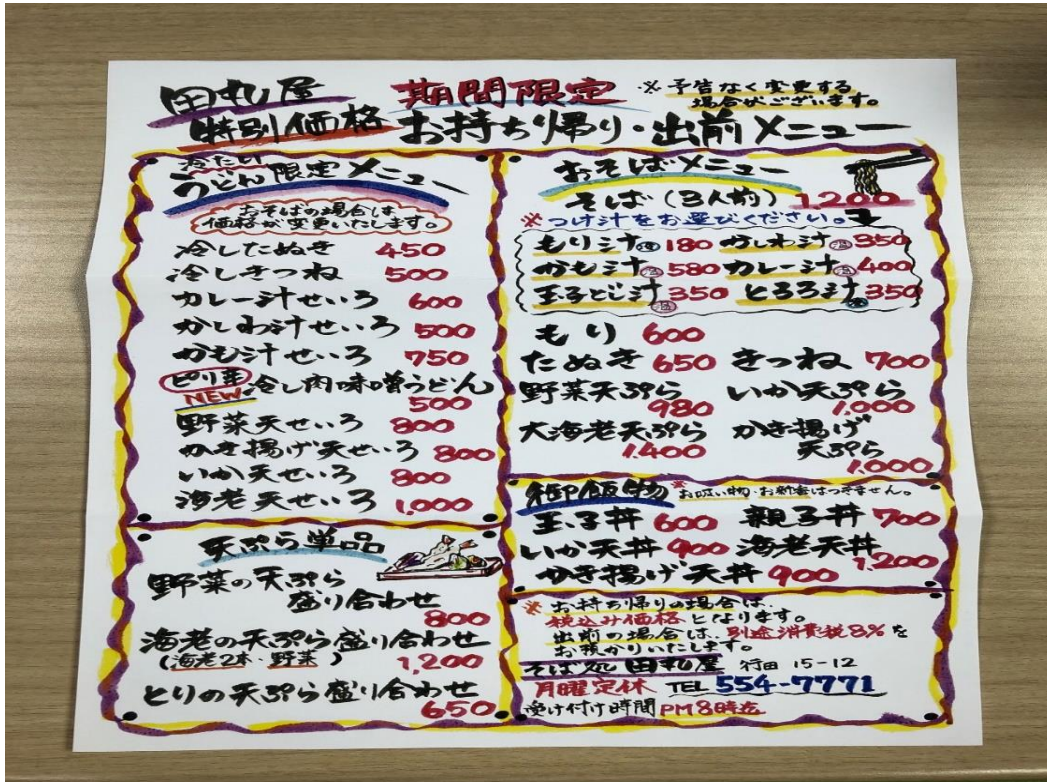 田丸屋 期間限定 ※予告なく変更する
場合がございます。
特別価格 お持ち帰り・出前メニュー
冷たい
うどん限定メニュー
おそばの場合は
価格が変更いたします。
冷したぬき 450
冷しきつね 500
カレー汁せいろ 600
かしわ汁せいろ 500
かも汁せいろ 750
ピリ辛
NEW 冷し肉味噌うどん
500
野菜天せいろ 800
かき揚げ天せいろ 800
いか天せいろ 800
海老天せいろ 1,000
天ぷら単品
野菜の天ぷら
盛り合わせ
800
海老の天ぷら盛り合わせ
(海老2本・野菜) 1,200
とりの天ぷら盛り合わせ
650
おそばメニュー
そば(3人前) 1,200
※つけ汁をお選びください。
もり汁 180 かしわ汁 温 350
かも汁 温 580 カレー汁 温 400
玉子とじ汁 温 350 とろろ汁 350
もり 600
たぬき 650 きつね 700
野菜天ぷら いか天ぷら
980 1,000
大海老天ぷら かき揚げ
1,400 天ぷら
1,000
御飯物 ※お吸い物・お新香はつきません。
玉子丼 600 親子丼 700
いか天丼 900 海老天丼
1,200
かき揚げ天丼 900
※お持ち帰りの場合は、
税込み価格となります。
出前の場合は、別途消費税8%を
お預かりいたします。
そば処 田丸屋 行田 15-12
月曜定休 TEL 554-7771
受け付け時間 PM8時迄